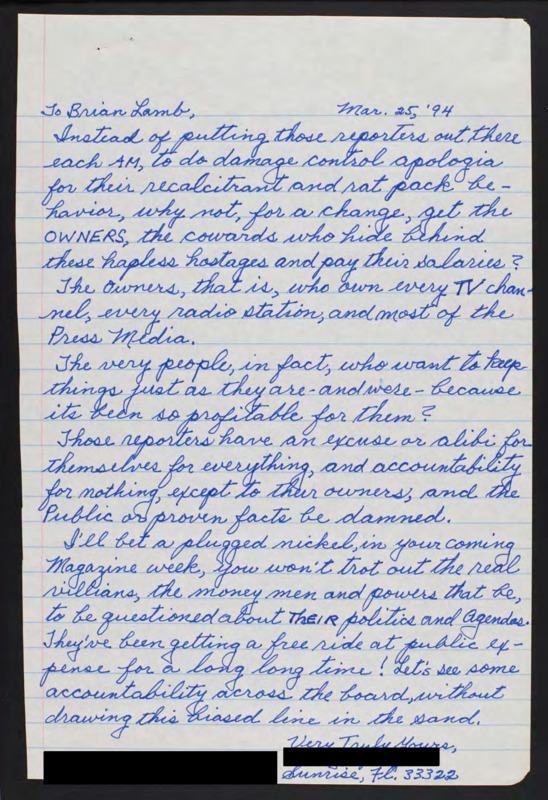 To Brian Lamb, Mar. 25, '94
Instead of putting those reporters out there
each AM, to do damage control apologia
for their recalcitrant and rat pack be-
havior, why not, for a change, get the
OWNERS, the cowards who hide behind
these hapless hostages and pay their salaries?
The Owners, that is, who own every TV chan-
nel, every radio station, and most of the
Press Media.
The very people, in fact, who want to keep
things just as they are - and were - because
its been so profitable for them?
Those reporters have an excuse or alibi for
themselves for everything, and accountability
for nothing, except to their owners, and the
Public or proven facts be damned.
I'll bet a plugged nickel, in your coming
Magazine week, you won't trot out the real
villians, the money men and powers that be,
to be questioned about THEIR politics and Agendas.
They've been getting a free ride at public ex-
pense for a long long time! Let's see some
accountability across the board, without
drawing this biased line in the sand.
Very Truly Yours,
Sunrise, Fl. 33322